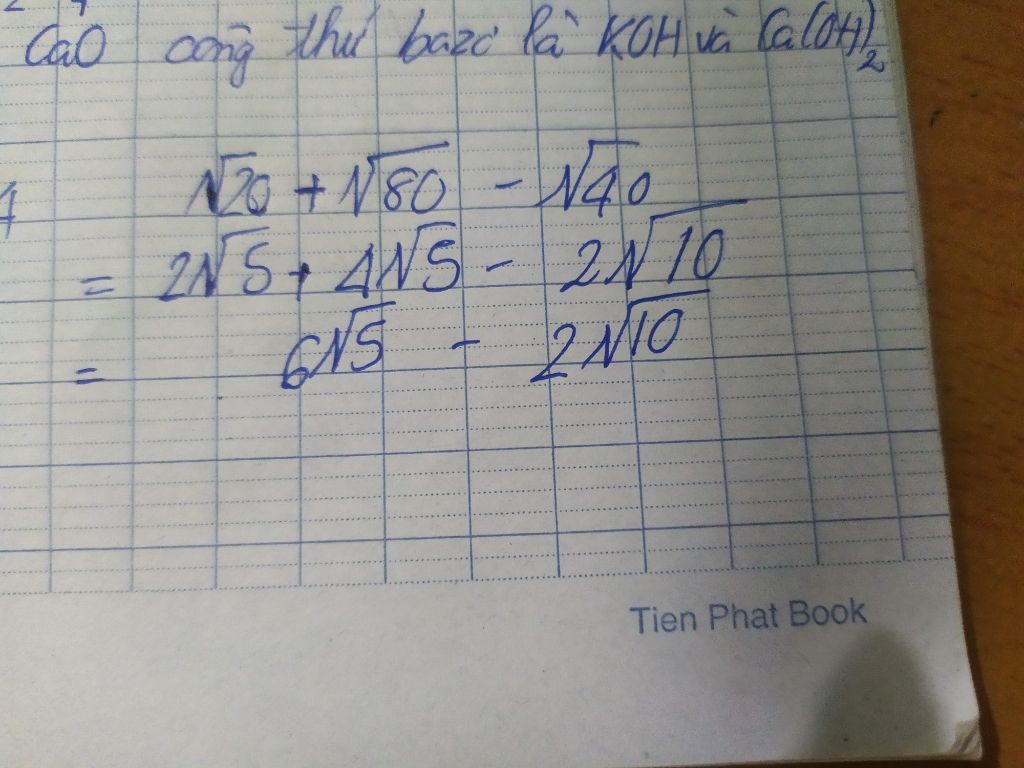 CaO công thứ bazơ là KOH và Ca(OH)₂
√20 + √80 - √40
= 2√5 + 4√5 - 2√10
= 6√5 - 2√10
Tien Phat Book